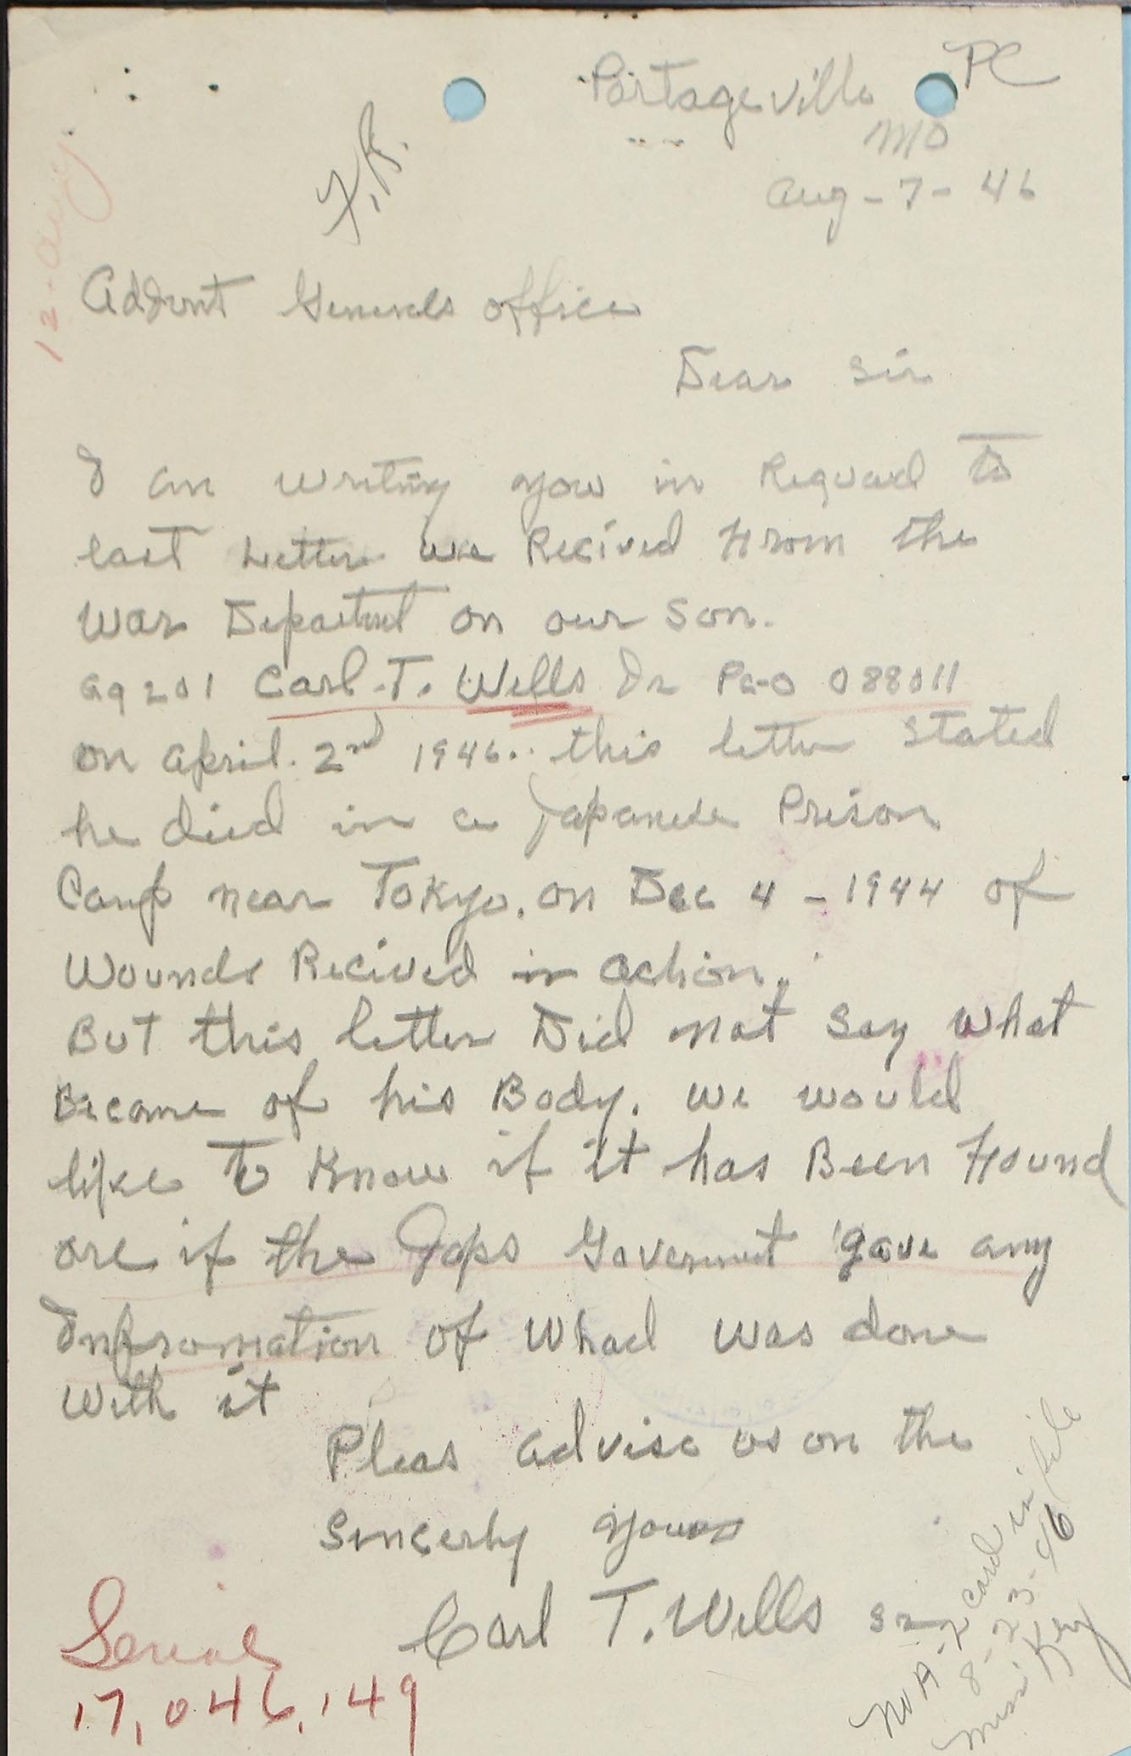 Portageville PC
MO
Aug-7-46
F.R.
12-Aug
Addont Generals office
Dear Sir
I am writing you in Reguard to
last Letter we Recived From the
War Departmt on our Son.
ag201 Carl.T. Wells Jr Pc-O 088011
on April. 2nd 1946. this letter stated
he died in a Japanese Prison
Camp near Tokyo. on Dec 4-1944 of
Wounds Recived in action.
But this letter Did not say what
Became of his Body. we would
like to Know if it has Been Found
ore if the Japs Goverment gave any
Infromation of Whad was done
with it
Pleas advise us on the
Sincerly yours
Carl T. Wells Sr
Serial
17,046,149
card in file
8-23-46
Miss Key